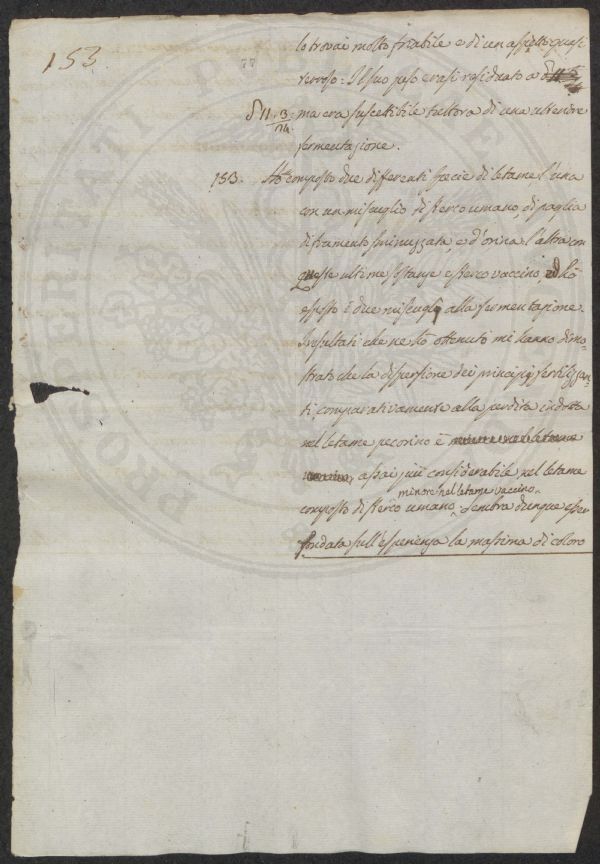 153
77
lo trovai molto friabile e di un aspetto quasi
terroso: Il suo peso erasi residuato a
11. 3/24 ma era suscettibile tuttora di una ulteriore
fermentazione.
153. Ho composto due differenti specie di letame, l'una
con un miscuglio di sterco umano, di paglia
di frumento sminuzzata, e d'orina l'altra con
queste ultime sostanze e sterco vaccino, ed hò
esposto i due miscuglj alla fermentazione.
I resultati che ne ho ottenuto mi hanno dimo-
strato che la dispersione dei principj fertilizzan-
ti comparativamente alla perdita indotta
nel letame pecorino è
assai più considerabile nel letame
minore nel letame vaccino.
composto di sterco umano, Sembra dunque esser
fondata sull'esperienza la massima di coloro
PROSPERITATI PUBLICAE